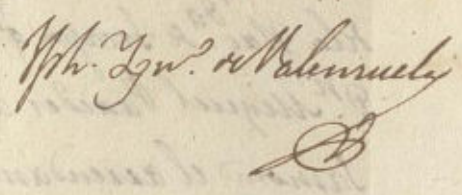 Jph. Ygnº. de Valenzuela